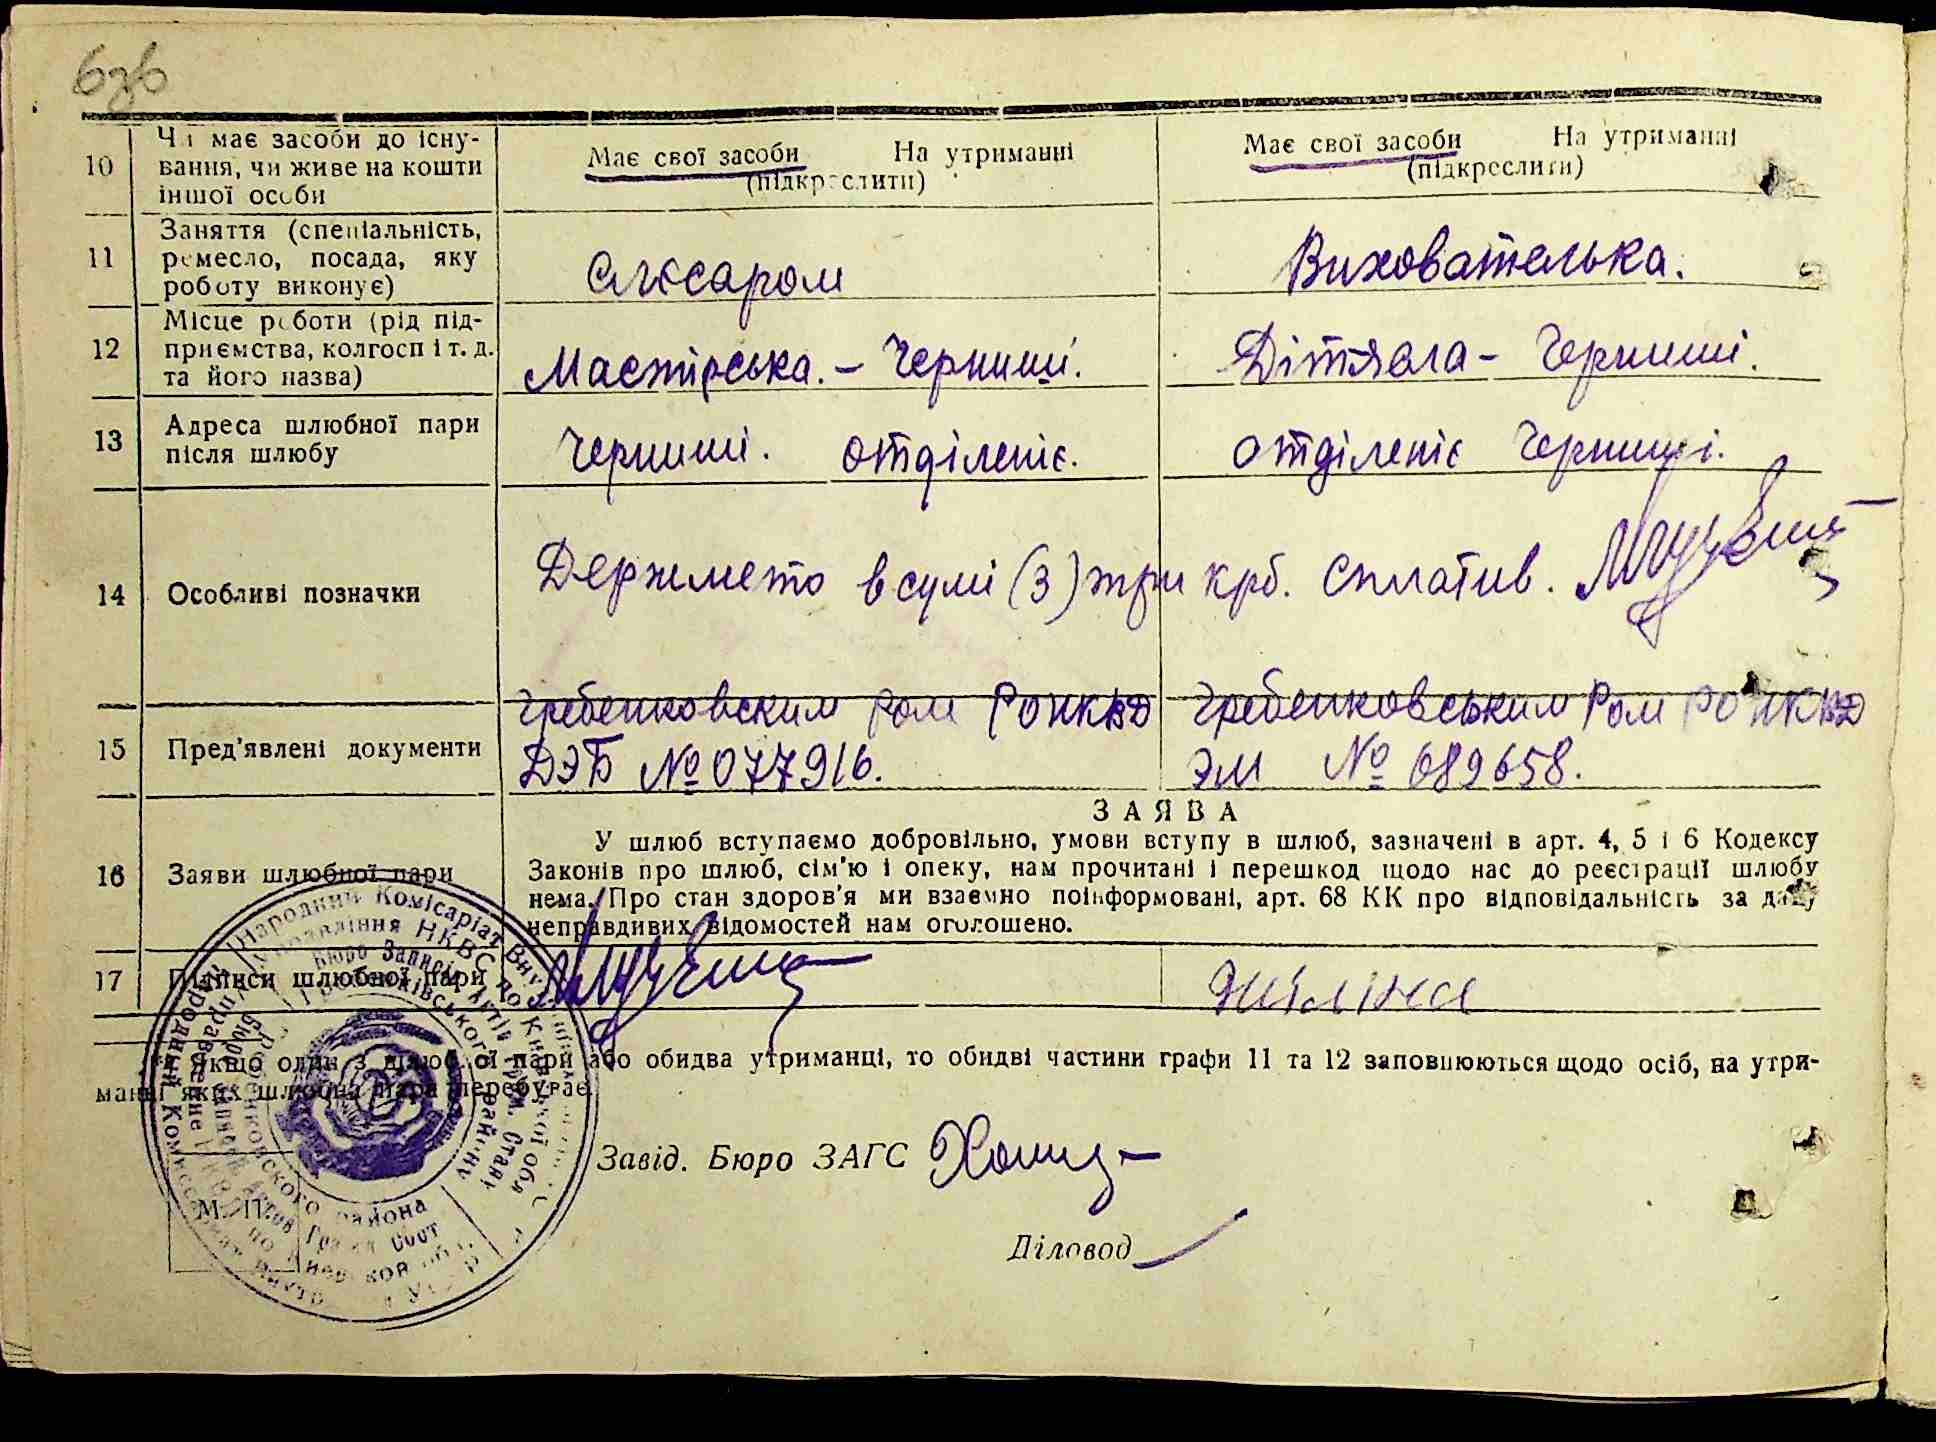 6зв
10 Чи має засоби до існу-
вання, чи живе на кошти
іншої особи
Має свої засоби На утриманні
(підкреслити)
Має свої засоби На утриманні
(підкреслити)
11 Заняття (спеціальність,
ремесло, посада, яку
роботу виконує)
Слєсаром
Вихователька.
12 Місце роботи (рід під-
приємства, колгосп і т. д.
та його назва)
Маєтирська. – Черниші.
Дітясла – Черниші.
13 Адреса шлюбної пари
після шлюбу
Черниші. отділеніє.
отділеніє Черниші.
14 Особливі позначки
Держмето в сумі (3) три крб. Сплатив.
15 Пред'явлені документи
Гребенковским Ром РОНКВД
ДЭБ № 077916.
Гребенковським Ром РОНКВД
ЭМ № 689658.
ЗАЯВА
16 Заяви шлюбної пари
У шлюб вступаємо добровільно, умови вступу в шлюб, зазначені в арт. 4, 5 і 6 Кодексу
Законів про шлюб, сім'ю і опеку, нам прочитані і перешкод щодо нас до реєстрації шлюбу
нема. Про стан здоров'я ми взаємно поінформовані, арт. 68 КК про відповідальність за дачу
неправдивих відомостей нам оголошено.
17 Підписи шлюбної пари
Якщо один з шлюбної пари або обидва утриманці, то обидві частини графи 11 та 12 заповнюються щодо осіб, на утри-
манні яких шлюбна пара перебуває.
Завід. Бюро ЗАГС
М. П.
Діловод
Народний Комісаріат Внутрішніх
Управління НКВС по Київській обл
Бюро Записів Актів Гром. Стану
Гребінківського району